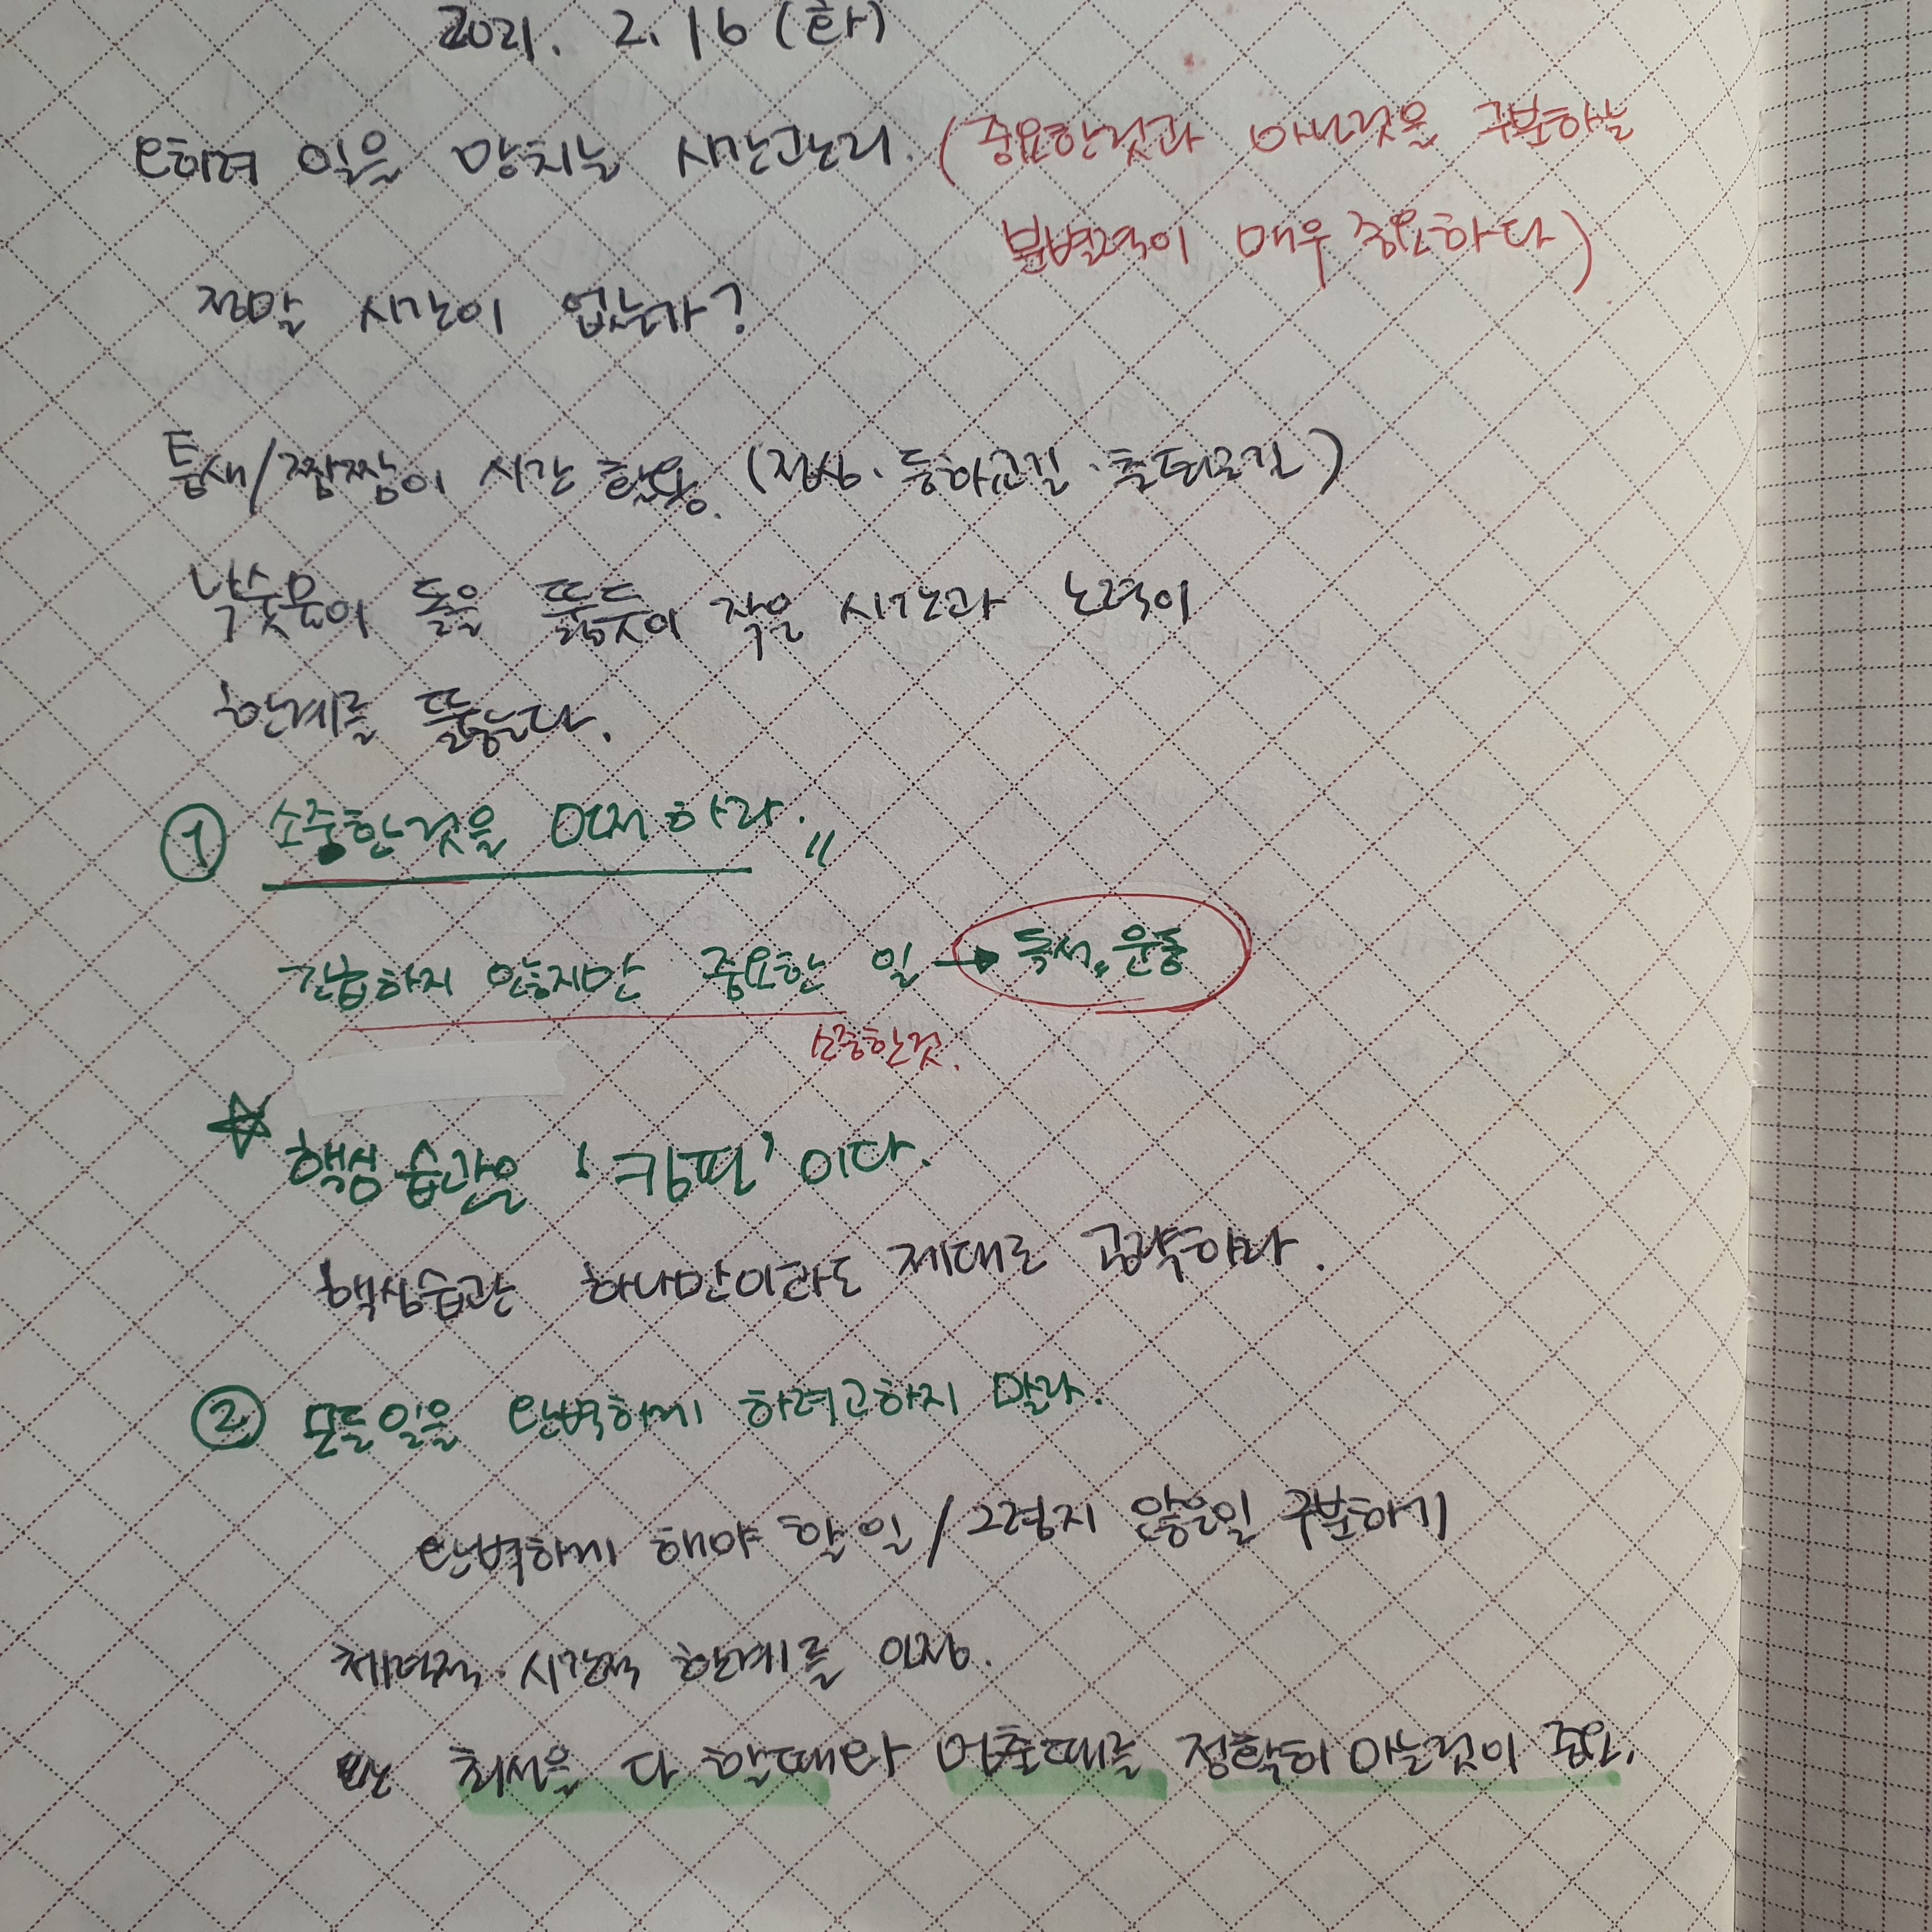 2021. 2. 16 (화)
오히려 일을 망치는 시간관리. (중요한것과 아닌것을 구분하는
분별력이 매우 중요하다)
정말 시간이 없는가?
틈새/짬짬이 시간 활용. (점심·등하교길·출퇴근길)
낙숫물이 돌을 뚫듯이 작은 시간과 노력이
한계를 뚫는다.
① 소중한것을 먼저 하라.
긴급하지 않지만 중요한 일 → 독서, 운동
소중한것.
☆ 핵심 습관은 '킹핀'이다.
핵심습관 하나만이라도 제대로 공략하라.
② 모든일을 완벽하게 하려고하지 말라.
완벽하게 해야 할 일 / 그렇지 않은일 구분하기
체력적·시간적 한계를 인정.
최선을 다 할때와 멈출때를 정확히 아는것이 중요.